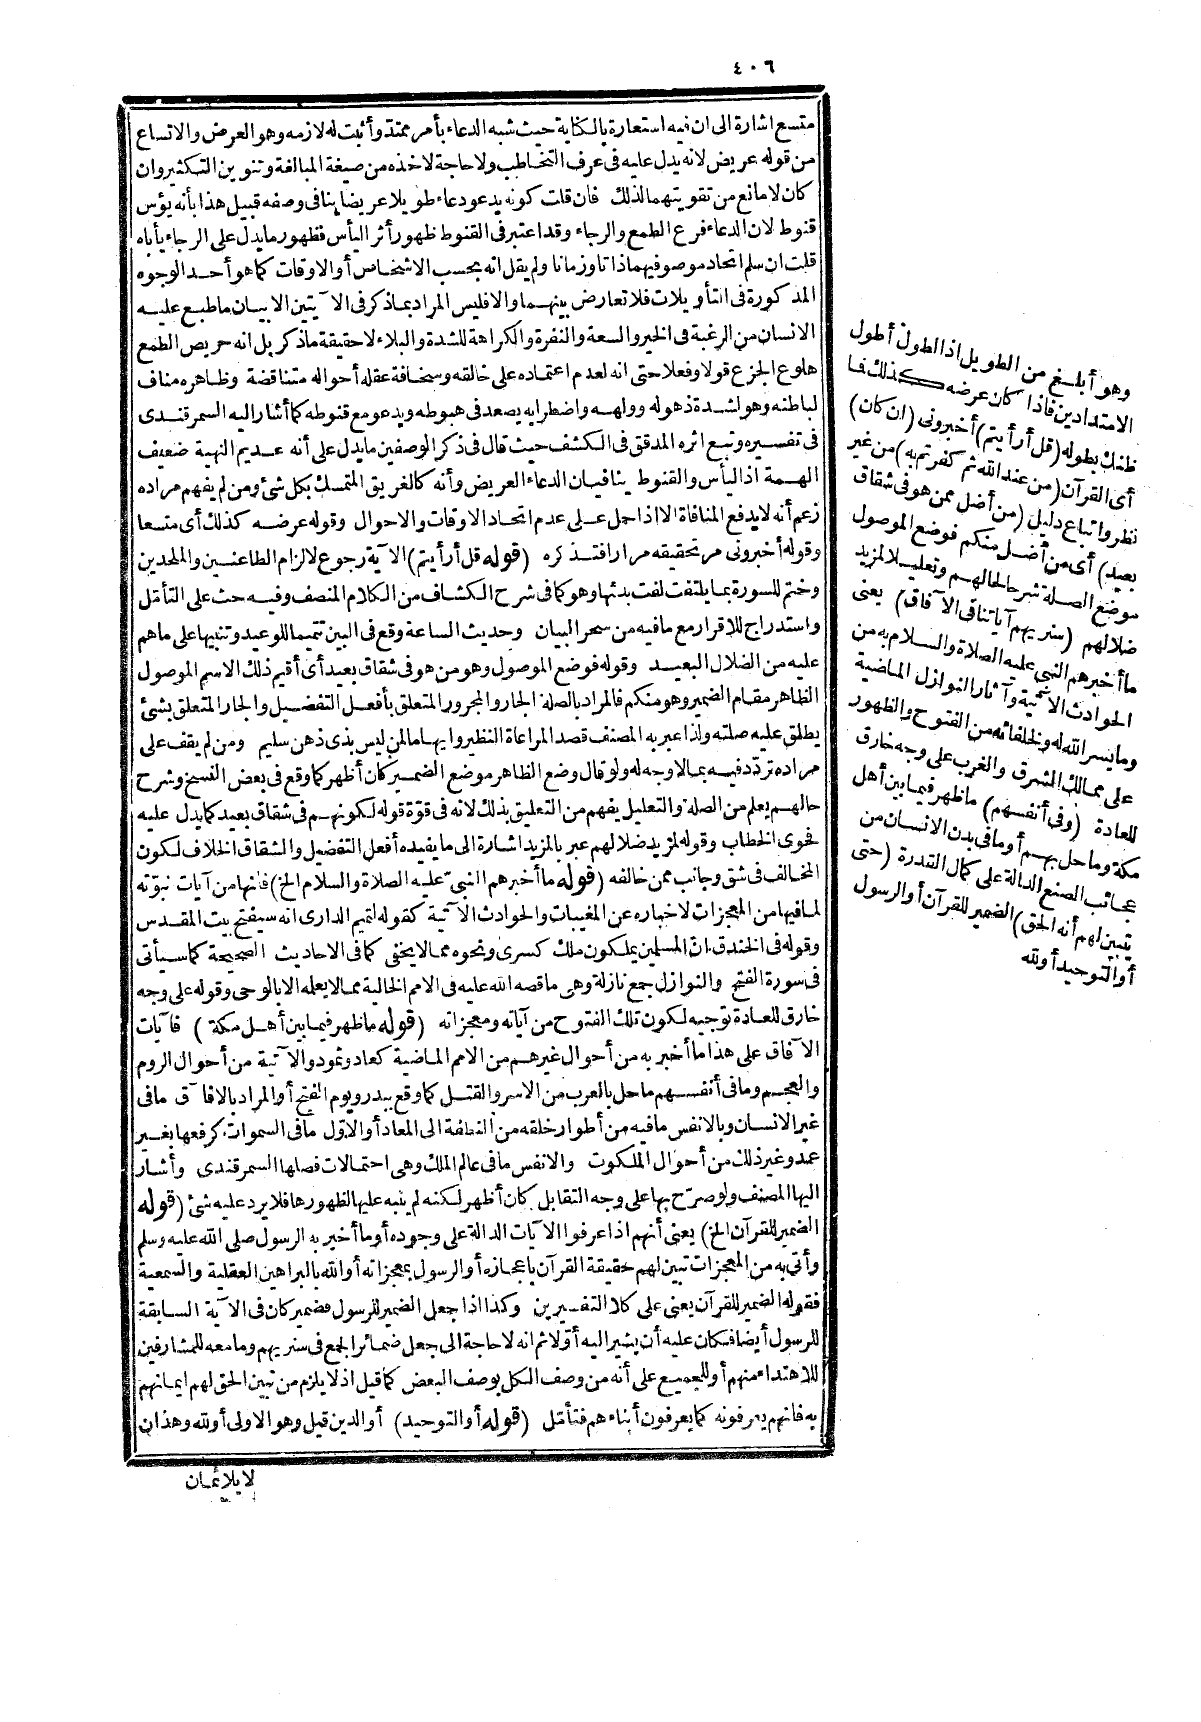 ٤٠٦
متسع اشارة الى ان فيه استعارة بالكناية حيث شبه الدعاء بأمر ممتد وأثبت له لازمه وهو العرض والاتساع
من قوله عريض لانه يدل عليه فى عرف التخاطب ولا حاجة لاخذه من صيغة المبالغة وتنوين التكثير وان
كان لا مانع من تقويتهما لذلك فان قلت كونه يدعو دعاء طويلا عريضا ينافى وصفه قبيل هذا بأنه يؤس
قنوط لان الدعاء فرع الطمع والرجاء وقد اعتبر فى القنوط ظهور أثر اليأس فظهور ما يدل على الرجاء يأباه
قلت ان سلم اتحاد موصوفيهما ذاتا وزمانا ولم يقل انه بحسب الاشخاص أو الاوقات كما هو أحد الوجوه
المذكورة فى التأويلات فلا تعارض بينهما والا فليس المراد بما ذكر فى الآيتين الا بيان ما طبع عليه
الانسان من الرغبة فى الخير والسعة والنفرة والكراهة للشدة والبلاء لا حقيقة ما ذكر بل انه حريص الطمع
هلوع الجزع قولا وفعلا حتى انه لعدم اعتماده على خالقه وسخافة عقله أحواله متناقضة وظاهره مناف
لباطنه وهو لشدة ذهوله وولهه واضطرابه يصعد فى هبوطه ويدعو مع قنوطه كما أشار اليه السمرقندى
فى تفسيره وتبع اثره المدقق فى الكشف حيث قال فى ذكر الوصفين ما يدل على أنه عديم النهية ضعيف
الهمة اذ اليأس والقنوط ينافيان الدعاء العريض وأنه كالغريق المتمسك بكل شئ ومن لم يفهم مراده
زعم أنه لا يدفع المنافاة الا اذا حمل على عدم اتحاد الاوقات والاحوال وقوله عرضه كذلك أى متسعا
وقوله أخبرونى مر تحقيقه مرارا فتذكره (قوله قل أرأيتم) الآية رجوع لالزام الطاعنين والملحدين
وختم للسورة بما يلتفت لفت بدئها وهو كما فى شرح الكشاف من الكلام المنصف وفيه حث على التأمل
واستدراج للاقرار مع ما فيه من سحر البيان وحديث الساعة وقع فى البين تتميما للوعيد وتنبيها على ما هم
عليه من الضلال البعيد وقوله فوضع الموصول وهو من هو فى شقاق بعيد أى أقيم ذلك الاسم الموصول
الظاهر مقام الضمير وهو منكم فالمراد بالصلة الجار والمجرور المتعلق بأفعل التفضيل والجار المتعلق بشئ
يطلق عليه صلته ولذا عبر به المصنف قصد المراعاة النظير وايهاما لمن ليس بذى ذهن سليم ومن لم يقف على
مراده تردّد فيه بما لا وجه له ولو قال وضع الظاهر موضع الضمير كان أظهر كما وقع فى بعض النسخ وشرح
حالهم يعلم من الصلة والتعليل يفهم من التعليق بذلك لانه فى قوّة قوله لكونهم فى شقاق بعيد كما يدل عليه
فحوى الخطاب وقوله لمزيد ضلالهم عبر بالمزيد اشارة الى ما يفيده أفعل التفضيل والشقاق الخلاف لكون
المخالف فى شق وجانب ممن خالفه (قوله ما أخبرهم النبى عليه الصلاة والسلام الخ) فانها من آيات نبوّته
لما فيها من المعجزات لاخباره عن المغيبات والحوادث الآتية كقوله لتميم الدارى انه سيفتح بيت المقدس
وقوله فى الخندق انّ المسلمين يملكون ملك كسرى ونحوه مما لا يخفى كما فى الاحاديث الصحيحة كما سيأتى
فى سورة الفتح والنوازل جمع نازلة وهى ما قصه الله عليه فى الامم الخالية مما لا يعلمه الا بالوحى وقوله على وجه
خارق للعادة توجيه لكون تلك الفتوح من آياته ومعجزاته (قوله ما ظهر فيما بين أهل مكة) فآيات
الآفاق على هذا ما أخبر به من أحوال غيرهم من الامم الماضية كعاد وثمود والآتية من أحوال الروم
والعجم وما فى أنفسهم ما حل بالعرب من الاسر والقتل كما وقع ببدر ويوم الفتح أو المراد بالآفاق ما فى
غير الانسان وبالانفس ما فيه من أطوار خلقه من النطفة الى المعاد أو الاوّل ما فى السموات كرفعها بغير
عمد وغير ذلك من أحوال الملكوت والانفس ما فى عالم الملك وهى احتمالات فصلها السمرقندى وأشار
اليها المصنف ولو صرّح بها على وجه التقابل كان أظهر لكنه لم ينبه عليها لظهورها فلا يرد عليه شئ (قوله
الضمير للقرآن الخ) يعنى أنهم اذا عرفوا الآيات الدالة على وجوده أو ما أخبر به الرسول صلى الله عليه وسلم
وأتى به من المعجزات تبين لهم حقيقة القرآن باعجازه أو الرسول بمعجزاته أو الله بالبراهين العقلية والسمعية
فقوله الضمير للقرآن يعنى على كلا التفسيرين وكذا اذا جعل الضمير للرسول فضمير كان فى الآية السابقة
للرسول أيضا فكان عليه أن يشير اليه أوّلا ثم انه لا حاجة الى جعل ضمائر الجمع فى سنريهم وما معه للمشارفين
للاهتداء منهم أو للجميع على أنه من وصف الكل بوصف البعض كما قيل اذ لا يلزم من تبين الحق لهم ايمانهم
به فانهم يعرفونه كما يعرفون أبناءهم فتأمّل (قوله أو التوحيد) أو الدين قيل وهو الاولى أو لله وهذان
لا يلائمان
وهو أبلغ من الطويل اذ الطول أطول
الامتدادين فاذا كان عرضه كذلك فما
ظنك بطوله (قل أرأيتم) أخبرونى (ان كان)
أى القرآن (من عند الله ثم كفرتم به) من غير
نظر واتباع دليل (من أضل ممن هو فى شقاق
بعيد) أى من أضل منكم فوضع الموصول
موضع الصلة شرحا لحالهم وتعليلا لمزيد
ضلالهم (سنريهم آياتنا فى الآفاق) يعنى
ما أخبرهم النبى عليه الصلاة والسلام به من
الحوادث الآتية وآثار النوازل الماضية
وما يسر الله له ولخلفائه من الفتوح والظهور
على ممالك الشرق والغرب على وجه خارق
للعادة (وفى أنفسهم) ما ظهر فيما بين أهل
مكة وما حل بهم أو ما فى بدن الانسان من
عجائب الصنع الدالة على كمال القدرة (حتى
يتبين لهم أنه الحق) الضمير للقرآن أو الرسول
أو التوحيد أو لله